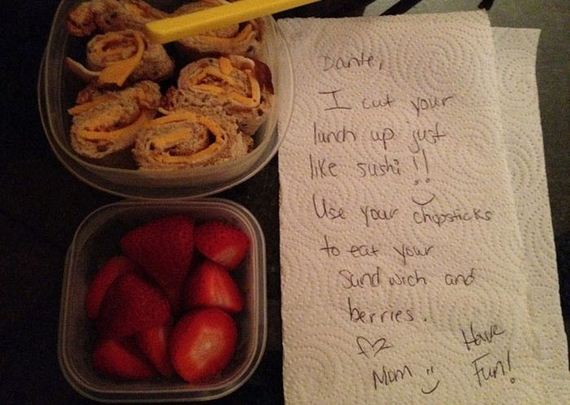 Dante,
I cut your
lunch up just
like sushi!!
Use your chopsticks
to eat your
sandwich and
berries.
Have
Mom Fun!